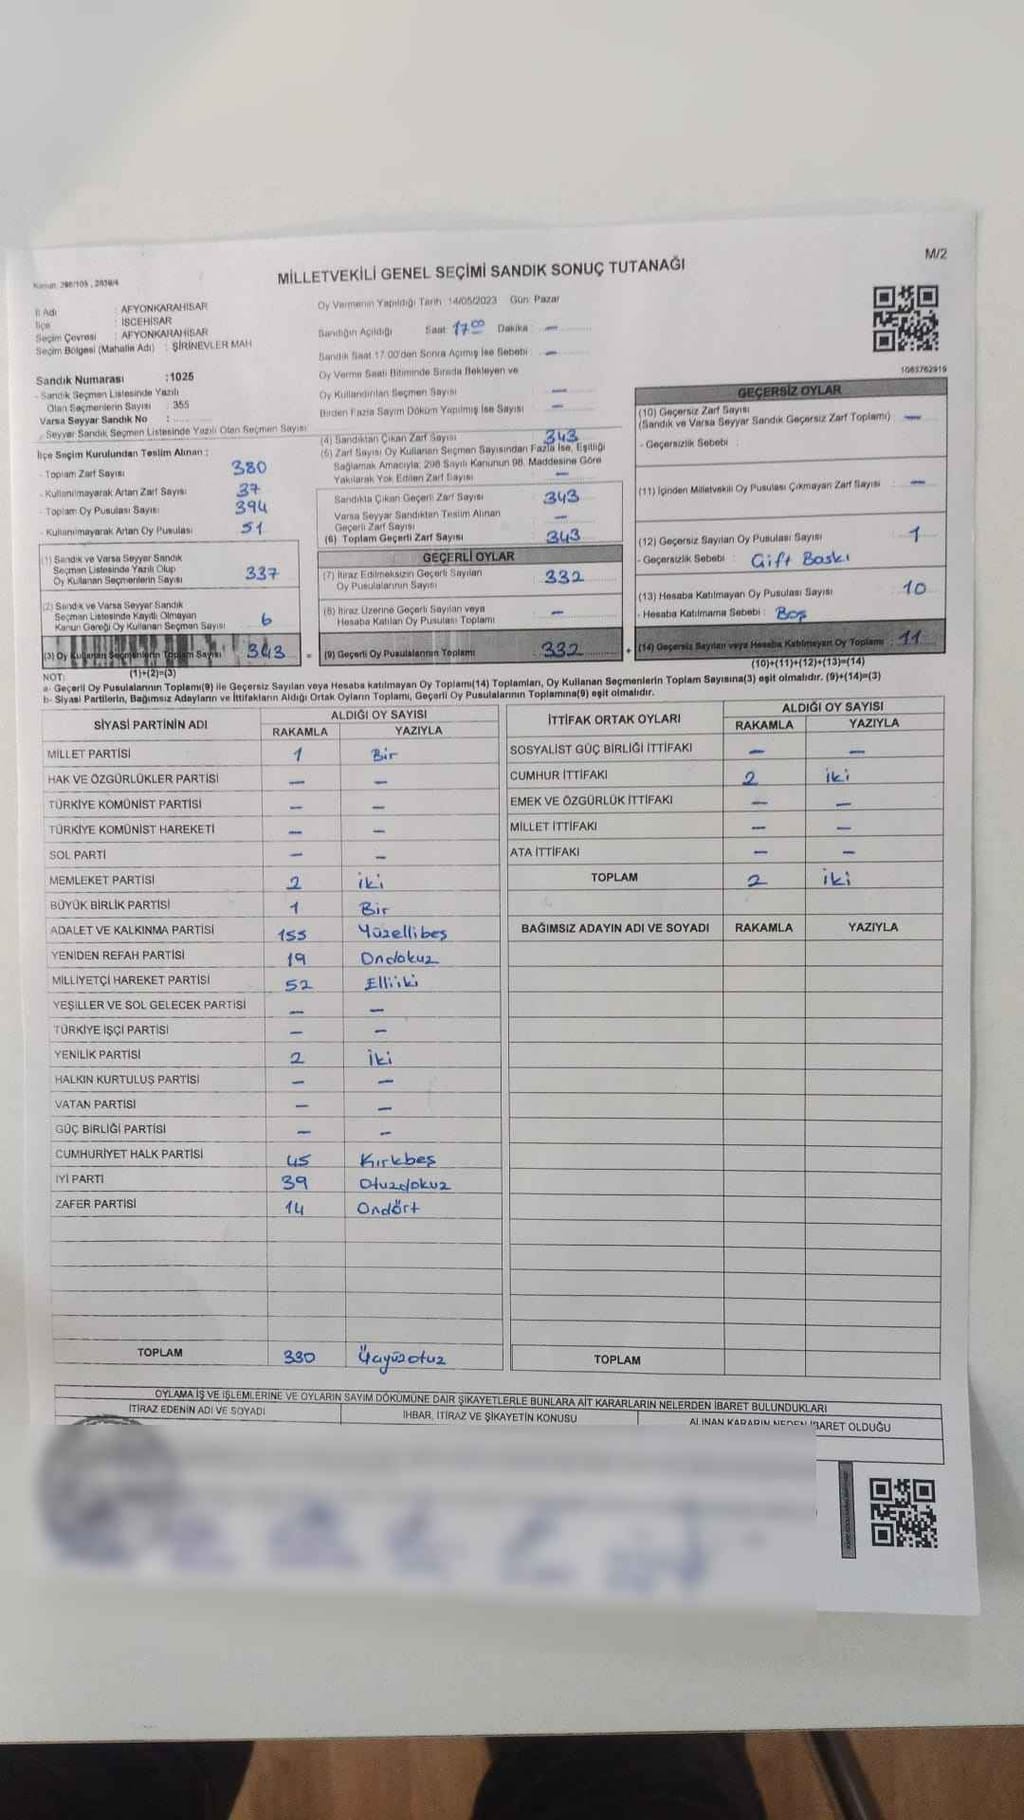 M/2
MİLLETVEKİLİ GENEL SEÇİMİ SANDIK SONUÇ TUTANAĞI
İl Adı : AFYONKARAHİSAR
İlçe : İSCEHİSAR
Seçim Çevresi : AFYONKARAHİSAR
Seçim Bölgesi (Mahalle Adı) : ŞİRİNEVLER MAH
Sandık Numarası :1025
- Sandık Seçmen Listesinde Yazılı
Olan Seçmenlerin Sayısı : 355
Varsa Seyyar Sandık No :
- Seyyar Sandık Seçmen Listesinde Yazılı Olan Seçmen Sayısı
İlçe Seçim Kurulundan Teslim Alınan :
- Toplam Zarf Sayısı 380
- Kullanılmayarak Artan Zarf Sayısı 37
- Toplam Oy Pusulası Sayısı 394
- Kullanılmayarak Artan Oy Pusulası 51
(1) Sandık ve Varsa Seyyar Sandık
Seçmen Listesinde Yazılı Olup
Oy Kullanan Seçmenlerin Sayısı 337
(2) Sandık ve Varsa Seyyar Sandık
Seçmen Listesinde Kayıtlı Olmayan
Kanun Gereği Oy Kullanan Seçmen Sayısı 6
(3) Oy Kullanan Seçmenlerin Toplam Sayısı 343
(1)+(2)=(3)
Oy Vermenin Yapıldığı Tarih : 14/05/2023 Gün: Pazar
Sandığın Açıldığı Saat: 17 00 Dakika : —
Sandık Saat 17:00'den Sonra Açılmış İse Sebebi : —
Oy Verme Saati Bitiminde Sırada Bekleyen ve
Oy Kullandırılan Seçmen Sayısı —
Birden Fazla Sayım Döküm Yapılmış İse Sayısı —
(4) Sandıktan Çıkan Zarf Sayısı 343
(5) Zarf Sayısı Oy Kullanan Seçmen Sayısından Fazla İse, Eşitliği
Sağlamak Amacıyla; 298 Sayılı Kanunun 98. Maddesine Göre
Yakılarak Yok Edilen Zarf Sayısı —
Sandıkta Çıkan Geçerli Zarf Sayısı 343
Varsa Seyyar Sandıktan Teslim Alınan
Geçerli Zarf Sayısı —
(6) Toplam Geçerli Zarf Sayısı 343
GEÇERLİ OYLAR
(7) İtiraz Edilmeksizin Geçerli Sayılan
Oy Pusulalarının Sayısı 332
(8) İtiraz Üzerine Geçerli Sayılan veya
Hesaba Katılan Oy Pusulası Toplamı —
= (9) Geçerli Oy Pusulalarının Toplamı 332
1063762919
GEÇERSİZ OYLAR
(10) Geçersiz Zarf Sayısı
(Sandık ve Varsa Seyyar Sandık Geçersiz Zarf Toplamı) —
- Geçersizlik Sebebi :
(11) İçinden Milletvekili Oy Pusulası Çıkmayan Zarf Sayısı —
(12) Geçersiz Sayılan Oy Pusulası Sayısı 1
- Geçersizlik Sebebi : Çift Baskı
(13) Hesaba Katılmayan Oy Pusulası Sayısı 10
- Hesaba Katılmama Sebebi : Boş
+ (14) Geçersiz Sayılan veya Hesaba Katılmayan Oy Toplamı : 11
(10)+(11)+(12)+(13)=(14)
NOT:
a- Geçerli Oy Pusulalarının Toplamı(9) ile Geçersiz Sayılan veya Hesaba katılmayan Oy Toplamı(14) Toplamları, Oy Kullanan Seçmenlerin Toplam Sayısına(3) eşit olmalıdır. (9)+(14)=(3)
b- Siyasi Partilerin, Bağımsız Adayların ve İttifakların Aldığı Ortak Oyların Toplamı, Geçerli Oy Pusulalarının Toplamına(9) eşit olmalıdır.
SİYASİ PARTİNİN ADI ALDIĞI OY SAYISI
RAKAMLA YAZIYLA
MİLLET PARTİSİ 1 Bir
HAK VE ÖZGÜRLÜKLER PARTİSİ — —
TÜRKİYE KOMÜNİST PARTİSİ — —
TÜRKİYE KOMÜNİST HAREKETİ — —
SOL PARTİ — —
MEMLEKET PARTİSİ 2 iki
BÜYÜK BİRLİK PARTİSİ 1 Bir
ADALET VE KALKINMA PARTİSİ 155 Yüzellibeş
YENİDEN REFAH PARTİSİ 19 Ondokuz
MİLLİYETÇİ HAREKET PARTİSİ 52 Elliiki
YEŞİLLER VE SOL GELECEK PARTİSİ — —
TÜRKİYE İŞÇİ PARTİSİ — —
YENİLİK PARTİSİ 2 İki
HALKIN KURTULUŞ PARTİSİ — —
VATAN PARTİSİ — —
GÜÇ BİRLİĞİ PARTİSİ — —
CUMHURİYET HALK PARTİSİ 45 Kırkbeş
İYİ PARTİ 39 Otuzdokuz
ZAFER PARTİSİ 14 Ondört
TOPLAM 330 Üçyüzotuz
İTTİFAK ORTAK OYLARI ALDIĞI OY SAYISI
RAKAMLA YAZIYLA
SOSYALİST GÜÇ BİRLİĞİ İTTİFAKI — —
CUMHUR İTTİFAKI 2 iki
EMEK VE ÖZGÜRLÜK İTTİFAKI — —
MİLLET İTTİFAKI — —
ATA İTTİFAKI — —
TOPLAM 2 iki
BAĞIMSIZ ADAYIN ADI VE SOYADI RAKAMLA YAZIYLA
TOPLAM
OYLAMA İŞ VE İŞLEMLERİNE VE OYLARIN SAYIM DÖKÜMÜNE DAİR ŞİKAYETLERLE BUNLARA AİT KARARLARIN NELERDEN İBARET BULUNDUKLARI
İTİRAZ EDENİN ADI VE SOYADI İHBAR, İTİRAZ VE ŞİKAYETİN KONUSU ALINAN KARARIN NEDEN İBARET OLDUĞU